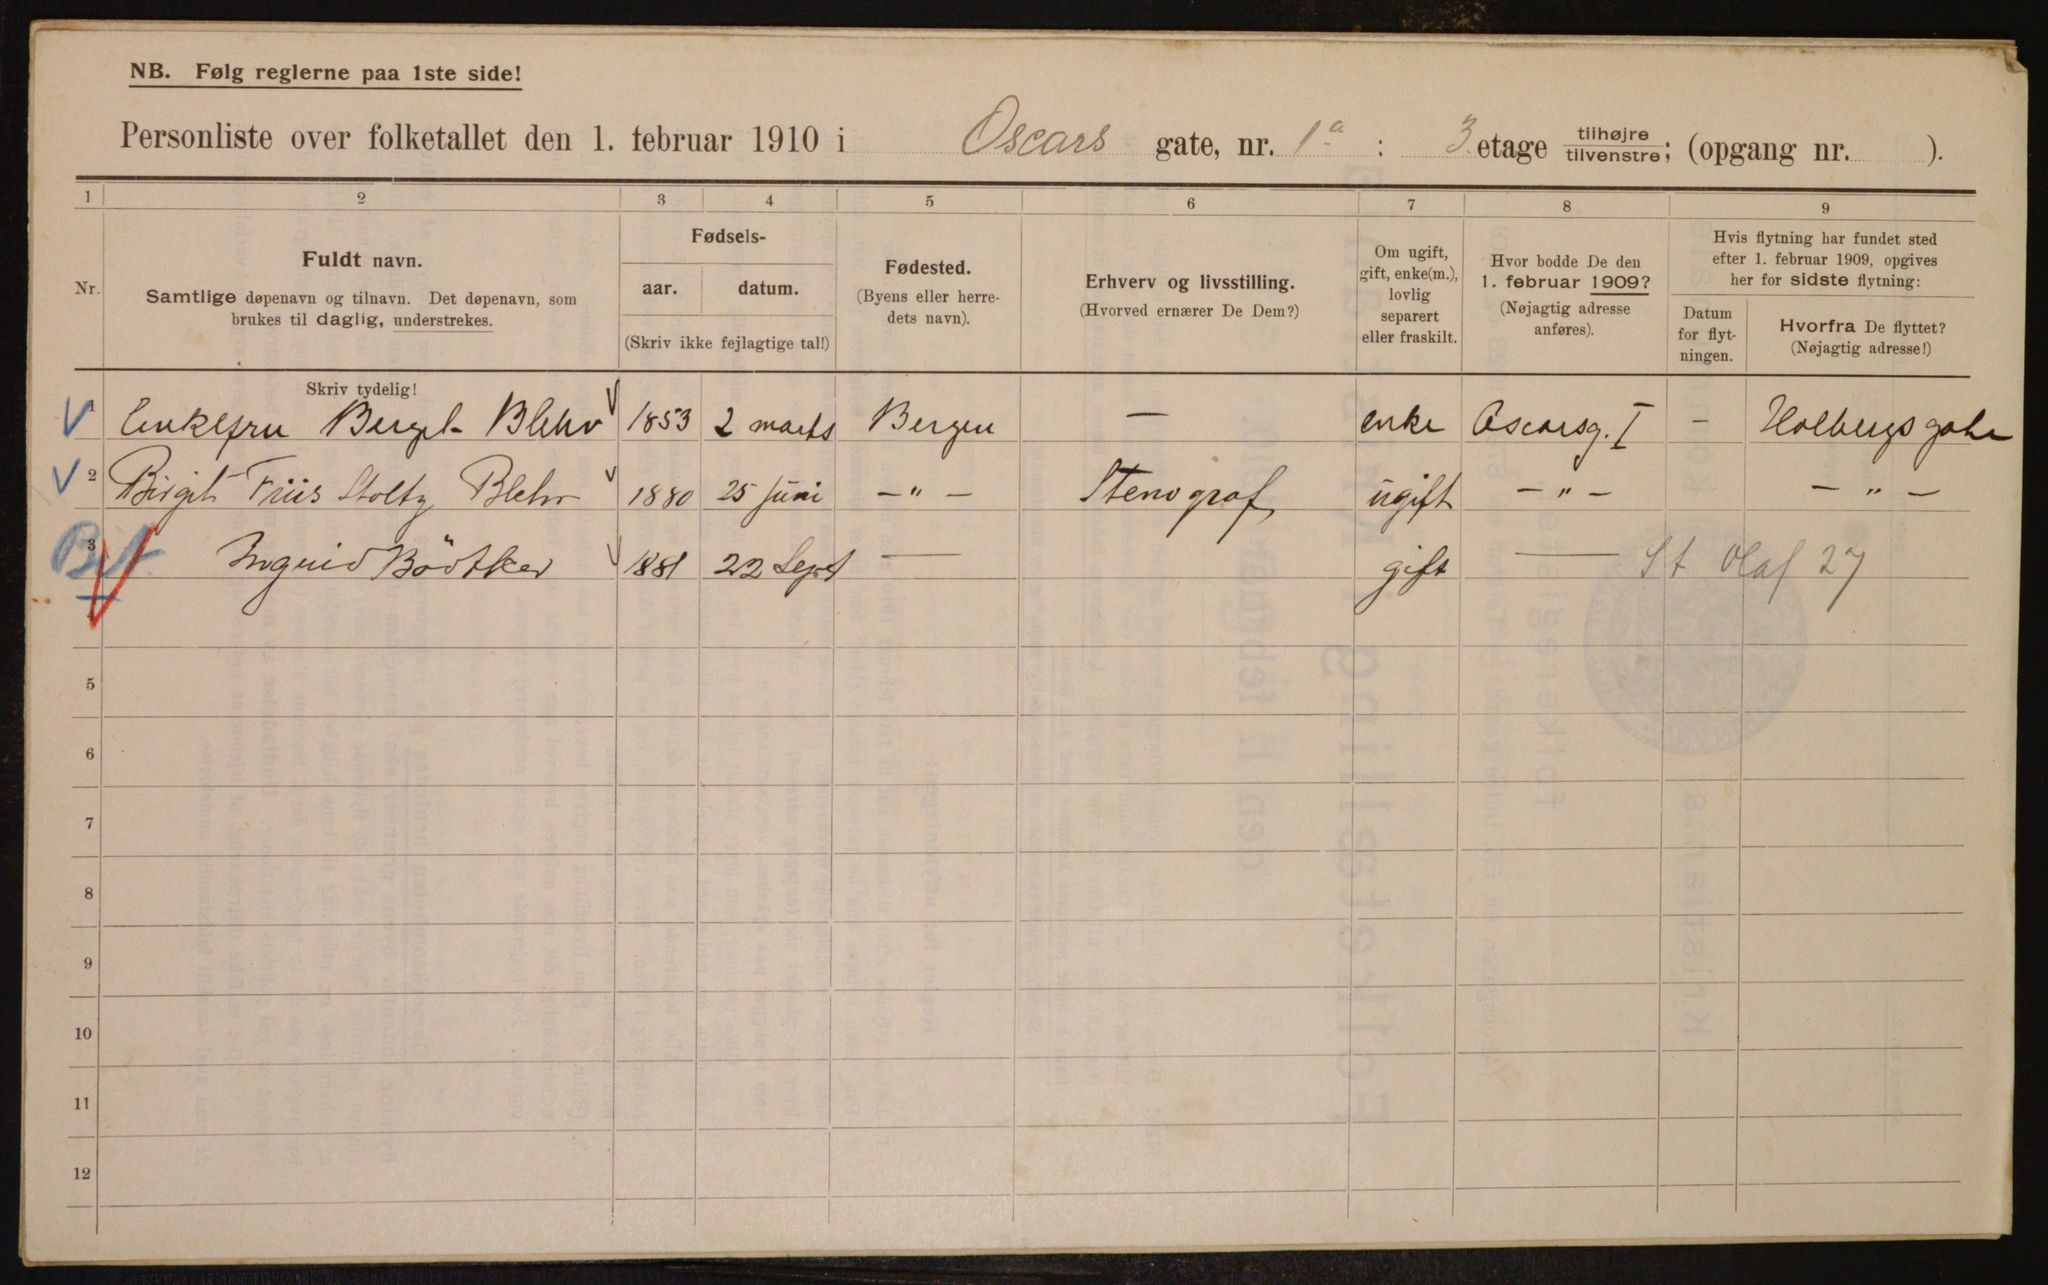 NB. Følg reglerne paa 1ste side!
Personliste over folketallet den 1. februar 1910 i Oscars gate, nr. 1a : 3 etage tilhøjre/tilvenstre; (opgang nr. ).
1 2 3 4 5 6 7 8 9
Nr.
Fuldt navn.
Samtlige døpenavn og tilnavn. Det døpenavn, som
brukes til daglig, understrekes.
Fødsels-
aar. datum.
(Skriv ikke fejlagtige tal!)
Fødested.
(Byens eller herre-
dets navn).
Erhverv og livsstilling.
(Hvorved ernærer De Dem?)
Om ugift,
gift, enke(m.),
lovlig
separert
eller fraskilt.
Hvor bodde De den
1. februar 1909?
(Nøjagtig adresse
anføres).
Hvis flytning har fundet sted
efter 1. februar 1909, opgives
her for sidste flytning:
Datum
for flyt-
ningen.
Hvorfra De flyttet?
(Nøjagtig adresse!)
Skriv tydelig!
Enkefru Blehr 1853 2 marts Bergen — enke Oscarsg. I – Holbergs gate
2 Birgit Friis Stoltz Blehr 1880 25 Juni – " – Stenograf ugift – " – – " –
3 Ingrid Bödtker 1881 22 Sept — gift — St Olaf 27
4
5
6
7
8
9
10
11
12